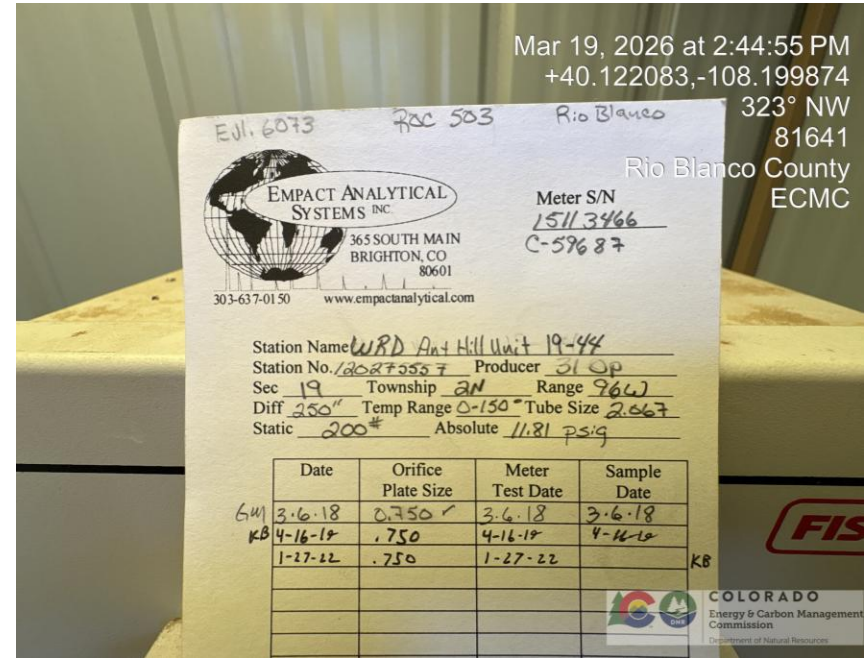 Mar 19, 2026 at 2:44:55 PM
+40.122083,-108.199874
323° NW
81641
Rio Blanco County
ECMC
EJl. 6073 ROC 503 Rio Blanco
EMPACT ANALYTICAL
SYSTEMS INC.
365 SOUTH MAIN
BRIGHTON, CO
80601
303-637-0150 www.empactanalytical.com
Meter S/N
15113466
C-59687
Station Name WRD Ant Hill Unit 19-44
Station No. 120275557 Producer 31 Op
Sec 19 Township 2N Range 96W
Diff 250" Temp Range 0-150° Tube Size 2.067
Static 200# Absolute 11.81 psig
Date Orifice Plate Size Meter Test Date Sample Date
GM 3.6.18 0.750 ✓ 3.6.18 3.6.18
KB 4-16-19 .750 4-16-19 4-16-19
1-27-22 .750 1-27-22 KB
FIS
COLORADO
Energy & Carbon Management
Commission
Department of Natural Resources